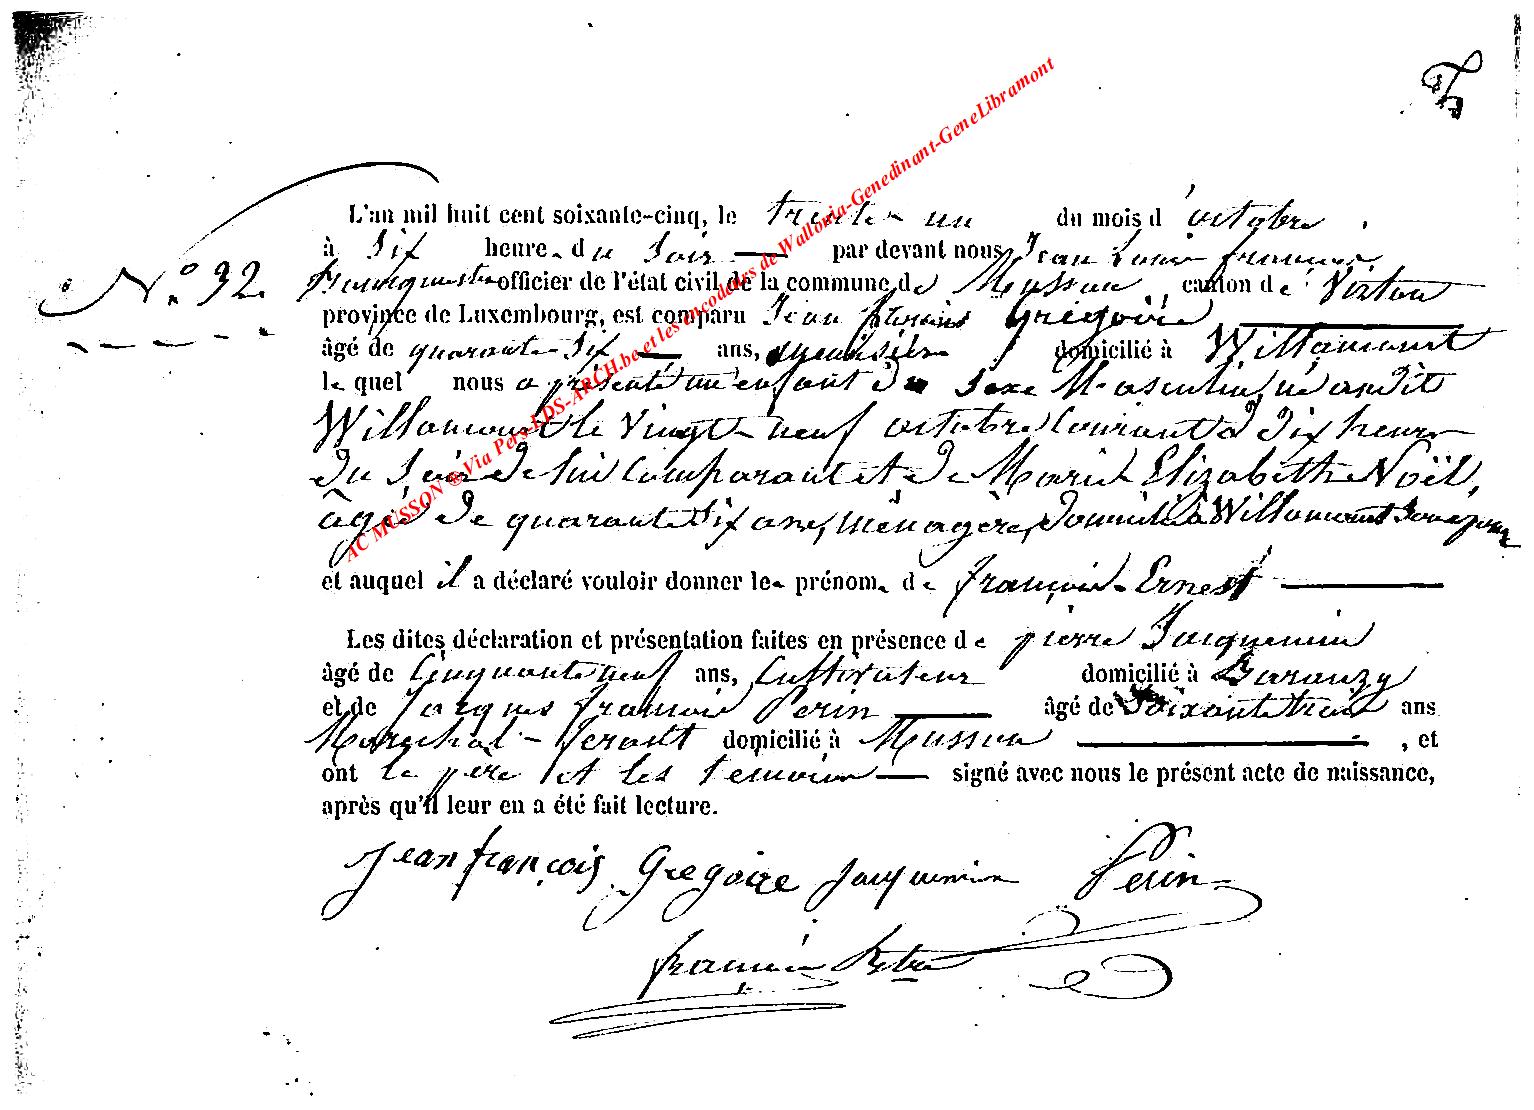 L'an mil huit cent soixante-cinq, le trente un du mois d'octobre
à six heure du soir par devant nous Jean Louis françois
N.° 92. Bourgmestre officier de l'état civil de la commune de Musson canton de Virton
province de Luxembourg, est comparu Jean françois Grégoire
âgé de quarante six ans, domicilié à Willamont
le quel nous a présenté un enfant du sexe Masculin, né audit
Willamont le Vingt neuf octobre Courant à dix heure
du Soir de lui Comparant et de Marie Elizabeth Noël,
âgée de quarante six ans, ménagère, domiciliée à Willamont Son épouse
et auquel il a déclaré vouloir donner le prénom de françois Ernest
Les dites déclaration et présentation faites en présence de pierre Jacquemin
âgé de Cinquante neuf ans, Cultivateur domicilié à Baranzy
et de Jacques françois Perin âgé de Soixante trois ans
Maréchal-ferant domicilié à Musson , et
ont le père et les temoins signé avec nous le présent acte de naissance,
après qu'il leur en a été fait lecture.
Jean françois Gregoire Jacquemin Perin
françois
AC MUSSON ® Via Pers-LDS-ARCH.be et les encodeurs de Wallonia-Genedinant-GeneLibramont